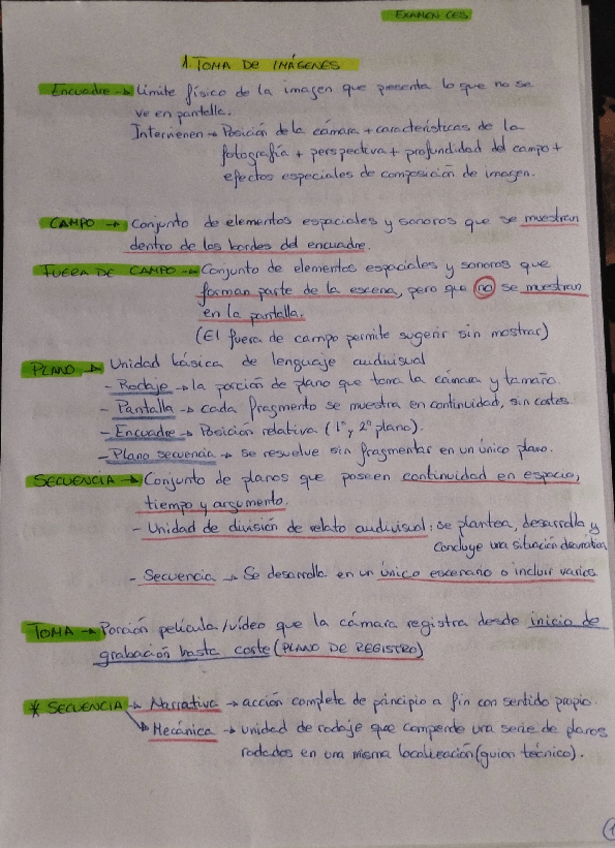 EXAMEN CES
1. TOMA DE IMÁGENES
Encuadre → Límite físico de la imagen que presenta lo que no se
ve en pantalla.
Intervienen → Posición de la cámara + características de la
fotografía + perspectiva + profundidad del campo +
efectos especiales de composición de imagen.
CAMPO → Conjunto de elementos espaciales y sonoros que se muestran
dentro de los bordes del encuadre.
FUERA DE CAMPO → Conjunto de elementos espaciales y sonoros que
forman parte de la escena, pero que no se muestran
en la pantalla.
(El fuera de campo permite sugerir sin mostrar)
PLANO → Unidad básica de lenguaje audiovisual
- Rodaje → la porción de plano que toma la cámara y tamaño.
- Pantalla → cada fragmento se muestra en continuidad, sin cortes.
- Encuadre → Posición relativa (1º, 2º plano).
- Plano secuencia → se resuelve sin fragmentar en un único plano.
SECUENCIA → Conjunto de planos que poseen continuidad en espacio,
tiempo y argumento.
- Unidad de división de relato audiovisual: se plantea, desarrolla y
concluye una situación dramática
- Secuencia → Se desarrolla en un único escenario o incluir varios.
TOMA → Porción película/vídeo que la cámara registra desde inicio de
grabación hasta corte (PLANO DE REGISTRO)
* SECUENCIA → Narrativa → acción completa de principio a fin con sentido propio.
→ Mecánica → unidad de rodaje que comprende una serie de planos
rodados en una misma localización (guion técnico).
1